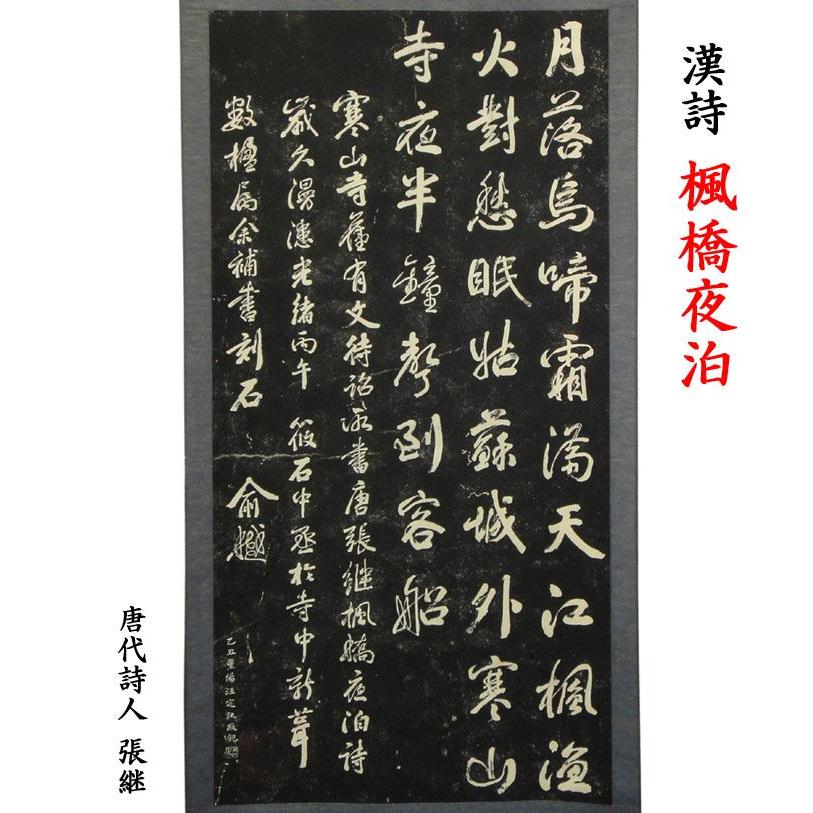 漢詩 楓橋夜泊
月落烏啼霜滿天江楓漁
火對愁眠姑蘇城外寒山
寺夜半鐘聲到客船
寒山寺舊有文待詔所書唐張繼楓橋夜泊詩
歲久漫漶光緒丙午 筱石中丞於寺中新葺
數楹属余補書刻石 俞樾
唐代詩人 張継